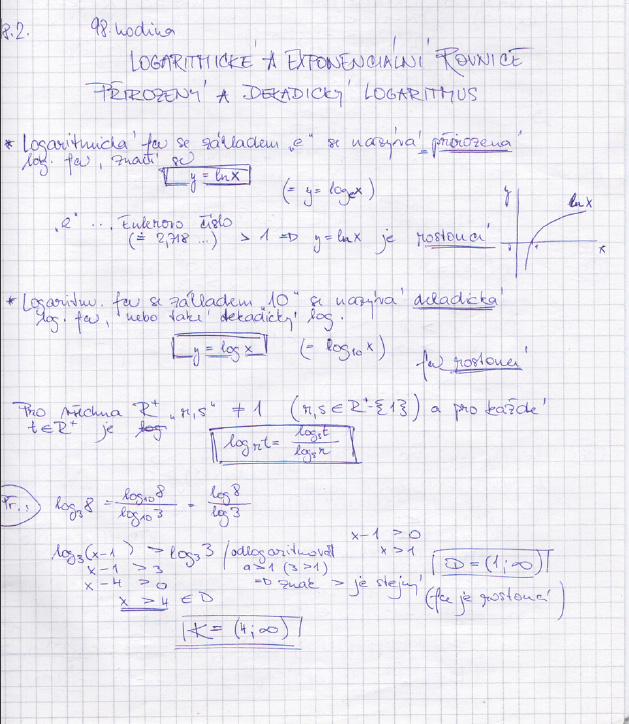 8.2. 98. hodina
LOGARITMICKÉ A EXPONENCIÁLNÍ ROVNICE
PŘIROZENÝ A DEKADICKÝ LOGARITMUS
* Logaritmická fce se základem „e“ se nazývá přirozená
log. fce, značí se
y = ln x
(= y = logₑx)
„e“ ... Eulerovo číslo
(≐ 2,718 ...) > 1 ⇒ y = ln x je rostoucí
y
ln x
x
* Logaritm. fce se základem „10“ se nazývá dekadická
log. fce, nebo také dekadický log.
y = log x
(= log₁₀x)
fce rostoucí
Pro všechna R⁺ „r,s“ ≠ 1 (r,s ∈ R⁺-{1}) a pro každé
t ∈ R⁺ je
logᵣt = logₛt / logₛr
Př.:
log₃8 = log₁₀8 / log₁₀3 = log 8 / log 3
x-1 > 0
log₃(x-1) > log₃3 /odlogaritmovat x > 1
D = (1;∞)
x-1 > 3 a>1 (3>1)
x-4 > 0 ⇒ znak > je stejný (fce je rostoucí)
x > 4 ∈ D
K = (4;∞)